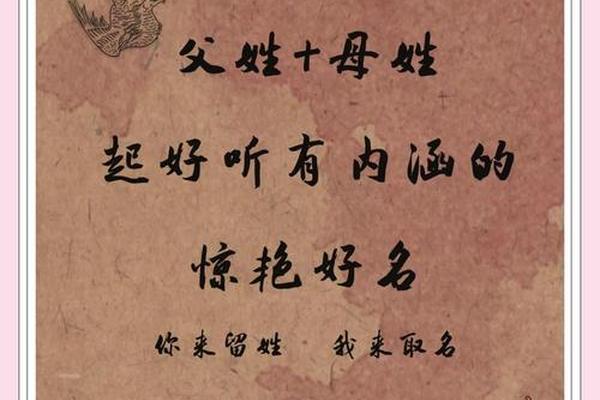 父姓+母姓
起好听有内涵的
惊艳好名
你来留姓 我来取名